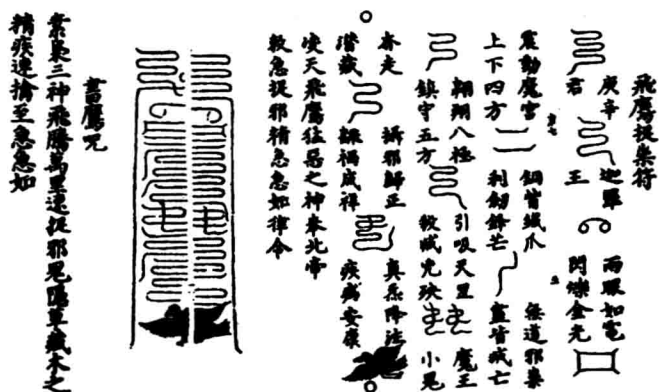 飛鷹捉祟符
庚辛 迦羅 兩眼如電
君 王 閃爍金光
震動魔宮 銅嘴鐵爪 吞道邪
上下四方 利劍鋒芒 盡皆滅亡
翱翔八極 引吸天 魔王
鎮守五方 殺滅 小鬼
奔走 攝邪歸正 真炁降
潛藏 禍成祥 疾病安康
天飛鷹 惡之神奉北帝
敕急捉邪精急急如律令
書鷹咒
三神飛騰萬里速捉邪鬼隱草藏木之
精疾速擒至急急如